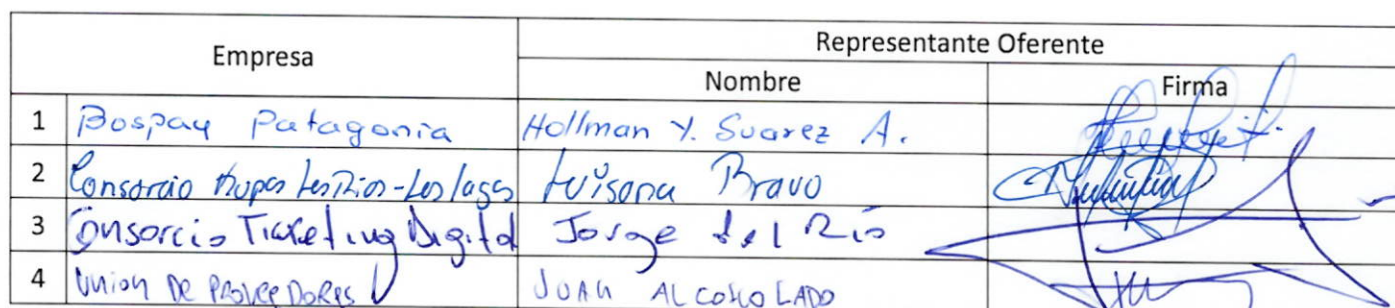 Empresa
Representante Oferente
Nombre
Firma
1 Bospay Patagonia Hollman Y. Suarez A.
2 Consorcio Los Ríos-Los Lagos Bravo
3 Consorcio Ticketing Digital Jorge del Río
4 Union De Proveedores JUAN ALCOHOLADO